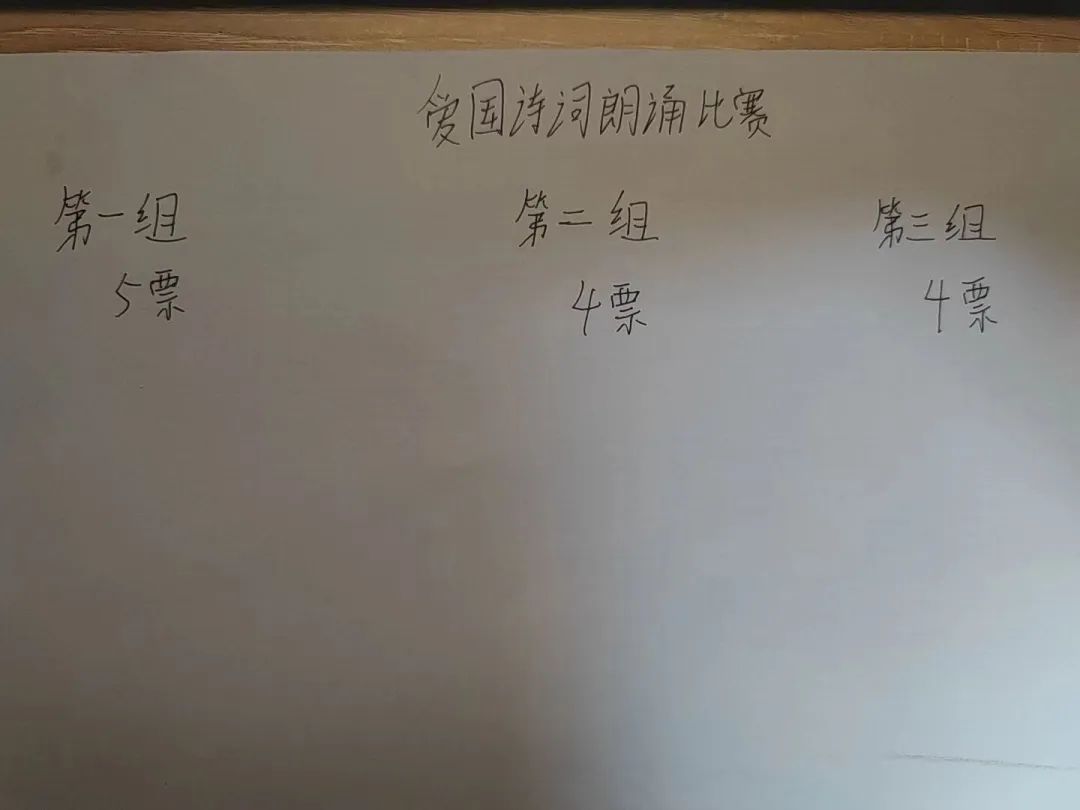 爱国诗词朗诵比赛
第一组 第二组 第三组
5票 4票 4票